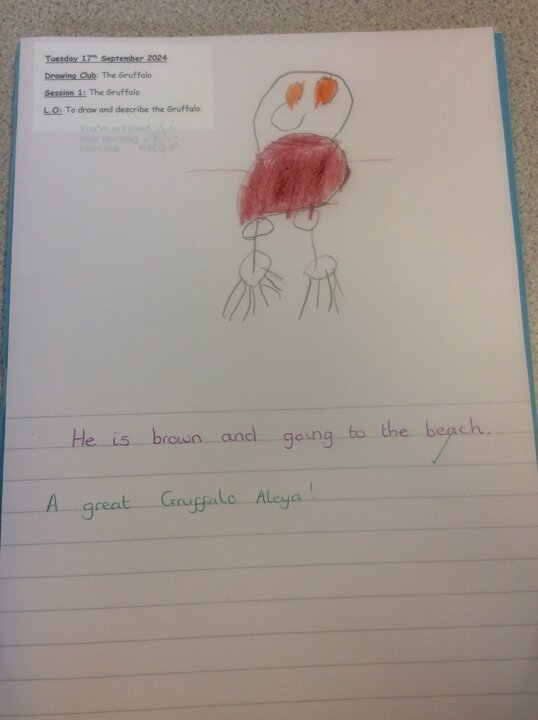 Tuesday 17th September 2024
Drawing Club: The Gruffalo
Session 1: The Gruffalo
L.O: To draw and describe the Gruffalo.
You've achieved
your learning
objective
He is brown and going to the beach.
A great Gruffalo Aleya!